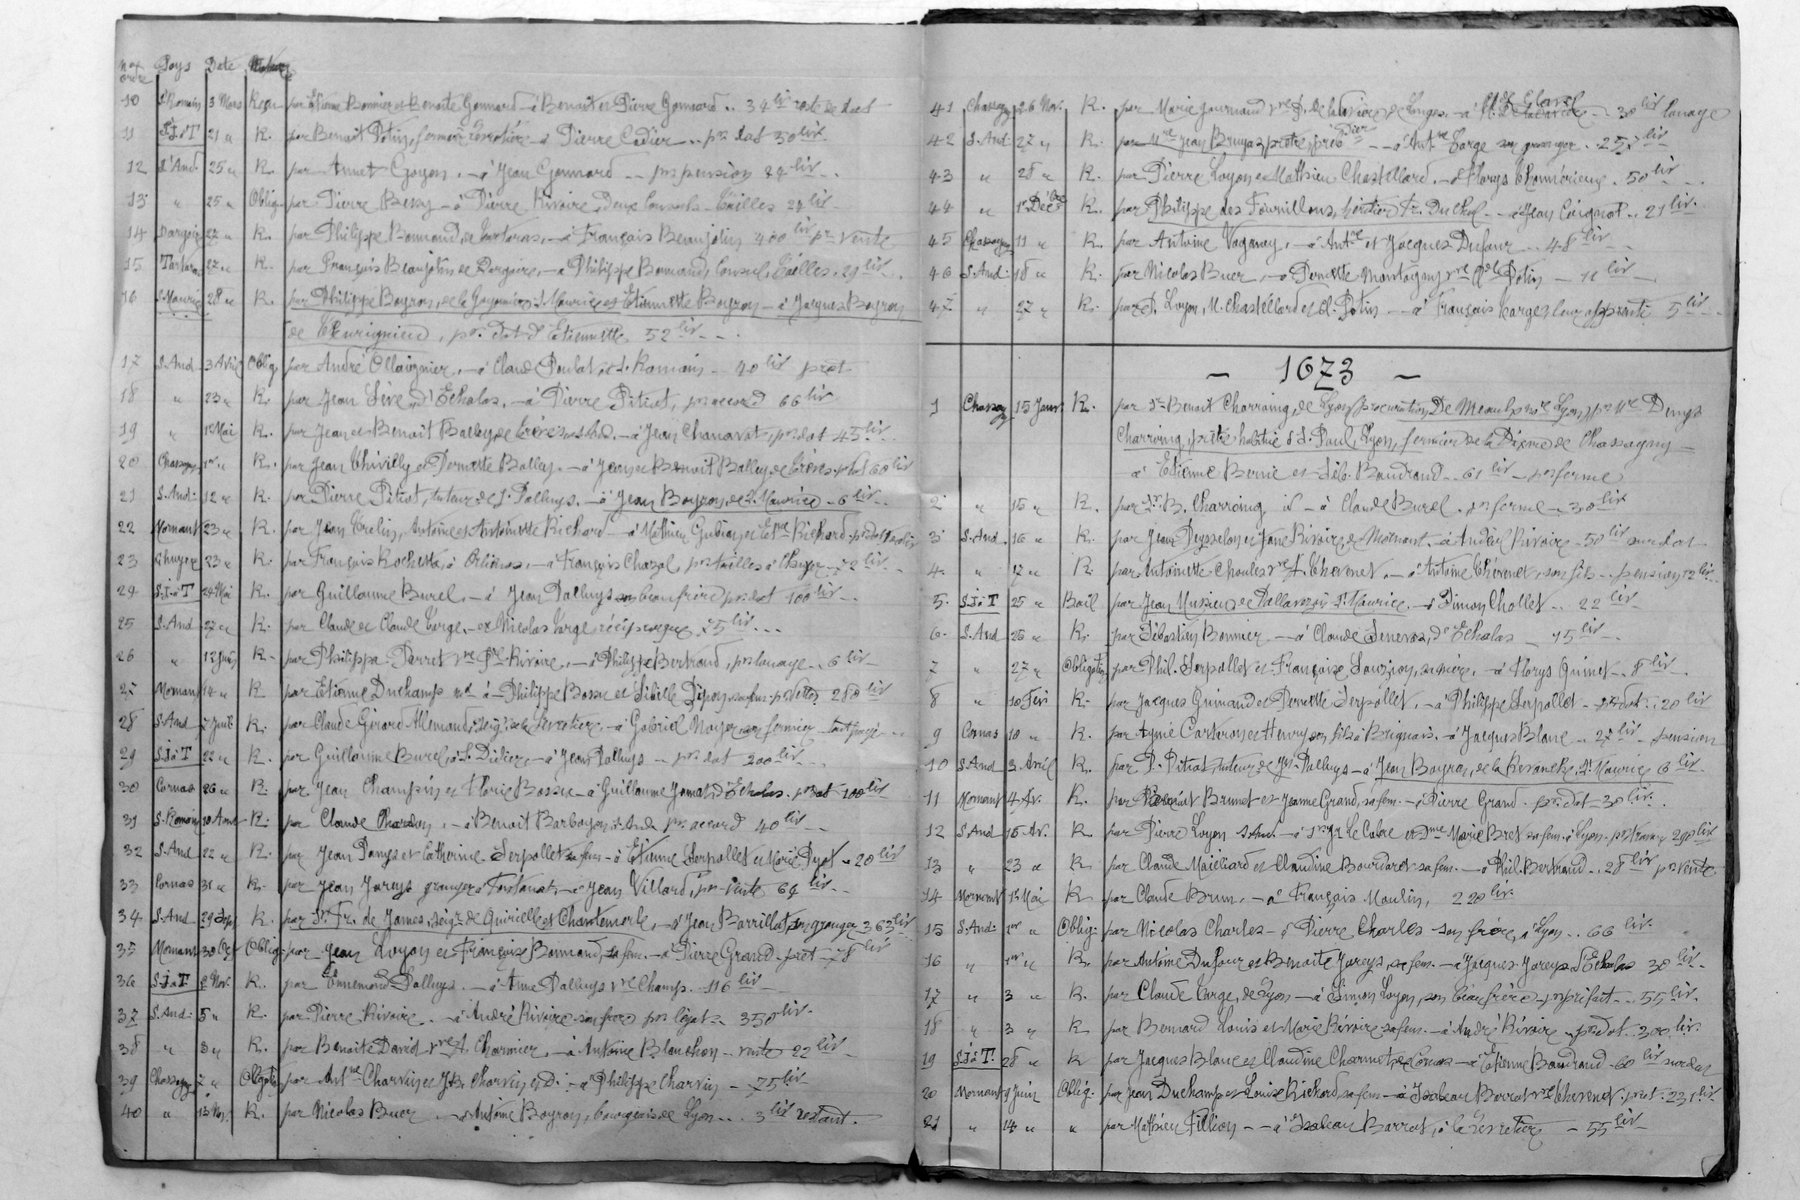 Nos ordre Pays Date
10 S. Romain 3 Mars Reçu par Etienne Bonnier et Benoite Gonnard - à Benoit et Pierre Gonnard .. 34 liv reste de dot
11 S.J.àT 21 " R. par Benoit Potin, fermier - à Pierre Cadier .. pr. dot 30 liv.
12 S. And. 25 " R. par Annet Goyon, - à Jean Gonnard -- pr. pension 24 liv -.
13 " 25 " Oblig. par Pierre Bessy - à Pierre Rivoire, Deux Consuls - Tailles 24 liv
14 Dargoire 27 " R. par Philippe Bonnand, de Tartaras, - à François Beaujolin 400 liv pr. vente
15 Tartaras 27 " R. par François Beaujolin de Dargoire, - à Philippe Bonnand, Consul, Tailles . 21 liv .
16 S. Maurice 28 " R. par Philippe Boyron, de S. Maurice et Etiennette Boyron - à Jacques Boyron
de , pr. Dot d'Etiennette 52 liv - - .
17 S. And. 3 Avril Oblig. par André Ollagnier, - à Claude Poulat, à S. Romain - 20 liv prêt
18 " 23 " R. par Jean Sève, d'Echalas, - à Pierre Pitiot, pr. accord 66 liv
19 " 1er Mai R. par Jean et Benoit Balley - à Jean Chanavat, pr. dot 45 liv ..
20 Chassagny 1er " R. par Jean Thivilly et Pernette Balley - à Jean et Benoit Balley pr. dot 60 liv
21 S. And. 12 " R. par Pierre Pitiot, tuteur de J. Palluys. - à Jean Boyron, de S. Maurice - 6 liv ..
22 Mornant 23 " R. par Jean Trelin, Antoine et Antoinette Richard - à Mathieu Gubian et Etne Richard
23 23 " R. par François Rochetta, à Orliénas, - à François Chazal, pr. tailles 72 liv - .
24 S.J.àT 24 Mai R. par Guillaume Burel, - à Jean Palluys son beau frère pr. dot 100 liv - .
25 S. And. 27 " R. par Claude et Claude Targe, - et Nicolas Targe, réciproque 75 liv ...
26 " 12 Juin R. par Philippa Perret vve Pre Rivoire, - à Philippe Bertrand, pr. louage - 6 liv -
27 Mornant 14 " R. par Etienne Duchamp - à Philippe Bosse et Sibille Pipon, sa fem. 280 liv
28 S. And. 7 Juil. R. par Claude Girard Allemand, - à Gabriel Noyer, son fermier
29 S.J.àT 22 " R. par Guillaume Burel, à S. Didier, - à Jean Palluys - pr. dot 200 liv ...
30 Cornas 26 " R. par Jean Champin et Florie Bosse - à Guillaume Jomat, d'Echalas. pr. dot 100 liv
31 S. Romain 10 Aout R. par Claude Chardon, - à Benoit Barboyon, S. And. pr. accord 40 liv - -
32 S. And. 22 " R. par Jean et Catherine Serpollet sa fem - à Etienne Serpollet et Marie - 20 liv
33 Cornas 31 " R. par Jean Jareys granger - à Jean Villard, pr. vente 64 liv - .
34 S. And. 29 Sep. R. par Sr. Fr. de James, seigr. de Quirielle et Chantemerle, - à Jean Barrillat son granger 363 liv
35 Mornant 30 Oct Oblig. par Jean Loyon et Françoise Bonnand, sa fem. - à Pierre Grand - prêt - 78 liv
36 S.J.àT 2 Nov. R. par Ennemond Palluys. - à Anne Palluys vve Champ. - 116 liv -
37 S. And. 5 " R. par Pierre Rivoire .. à André Rivoire son frère pr. légat - 350 liv.
38 " 8 " R. par Benoite David vve A. Charmier, - à Antoine Blanchon - vente 22 liv -
39 Chassagny 7 " Obligation par Antne Charvin et JB. Charvin - à Philippe Charvin - 75 liv
40 " 13 Nov. R. par Nicolas Buer, - à Antoine Boyron, bourgeois de Lyon - - 3 liv restant.
41 Chassagny 26 Nov. R. par Marie Journoud - 30 liv louage
42 S. And. 27 " R. par Mre Jean Bruyas prêtre - à Antne Targe son granger . 25 liv
43 " 28 " R. par Pierre Loyon et Mathieu Chastellard - à Florys . 50 liv
44 " 1er Déc. R. par Philippe des Fournillons, - à Jean Coignat .. 21 liv.
45 Chassagny 11 " R. par Antoine Vaganay, - à Antne et Jacques Dufour ... 48 liv -
46 S. And. 18 " R. par Nicolas Buer, - à Pernette Montagny vve Potin - 11 liv
47 " 27 " R. par P. Loyon, M. Chastellard et Potin - à François Targe, leur apprenti 5 liv
- 1673 -
1 Chassagny 15 Janv. R. par Sr. Benoit Charroing, de Lyon, procuration De Meaulx nre Lyon, pr. Mre Denys
Charroing, prêtre habitué à S. Paul, Lyon, fermier de la Dixme de Chassagny -
à Etienne Berne et Séb. Baudrand - 61 liv - pr. ferme
2 " 15 " R. par Sr. B. Charroing id - à Claude Burel . pr. ferme - 30 liv
3 S. And. 16 " R. par Jean Peysselon et Jane Rivoire, de Mornant, - à André Rivoire - 50 liv sur dot -
4 " 17 " R. par Antoinette vve A. Thevenet, - à Antoine Thevenet, son fils - pension 12 liv
5 S.J.àT 25 " Bail par Jean Mussieu de S. Maurice - à Simon Chollet .. 22 liv
6 S. And. 26 " R. par Sébastien Bonnier - à Claude Senevas, d'Echalas - 15 liv
7 " 27 " Obligation par Phil. Serpollet et Françoise sa mère, - à Florys Guinet - 8 liv
8 " 10 Fév. R. par Jacques Guinand et Pernette Serpollet, - à Philippe Serpollet - pr. dot .. 20 liv
9 Cornas 10 " R. par Aymé Carteron et Henry son fils à Brignais - à Jacques Blanc .. 27 liv - pension
10 S. And. 3 Avril R. par P. Pitiot tuteur de Palluys - à Jean Boyron, de la , S. Maurice 6 liv
11 Mornant 4 Av. R. par Benoit Brunet et Jeanne Grand, sa fem. - à Pierre Grand - pr. dot - 30 liv.
12 S. And. 16 Av. R. par Pierre Loyon S. And. - à Le Cabre et Dme Marie Bret sa fem. à Lyon - 290 liv
13 " 23 " R. par Claude et Claudine Bourdaret sa fem. - à Phil. Bertrand .. 28 liv pr. vente
14 Mornant 1er Mai R. par Claude Brun, - à François Moulin, 220 liv
15 S. And. 1er " Oblig. par Nicolas Charles - à Pierre Charles son frère, à Lyon .. 66 liv.
16 " 1er " R. par Antoine Dufour et Benoite Jareys, sa fem. - à Jacques Jareys d'Echalas 30 liv -
17 " 3 " R. par Claude Targe, de Lyon - à Simon Loyon, son beau frère - pr. prix fait .. 55 liv.
18 " 3 " R. par Bernard Louis et Marie Rivoire sa fem. - à André Rivoire - pr. dot 300 liv.
19 S.J.àT 28 " R. par Jacques Blanc et Claudine de Cornas - à Etienne Baudrand 60 liv sur dot
20 Mornant 9 Juin Oblig. par Jean Duchamp et Louise Richard, sa fem. - à Isabeau Barrat vve Thevenet . prêt . 231 liv
21 " 14 " " par Mathieu Fillion - à Isabeau Barrat, - 55 liv -